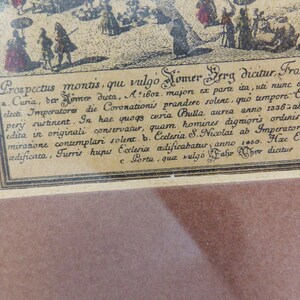 Prospectus montis, qui vulgo Römer Berg dicitur, Fra
a. Curia, der Römer dicta, Aº 1602. majori ex parte ita, uti nunc
electi Imperatores die Coronationis prandere solent, quo tempore
perij sustinent. In hac quoqs curia Bulla aurea anno 1356
dita in originali conservatur, quam homines dignoris ordinis
miratione contemplari solent b. Ecclesia S. Nicolai ab Imperator
ædificata, Turris hujus Ecclesiæ ædificabatur, anno 1460. Hæc E
c Portu, qua vulgo Fahr dicitur